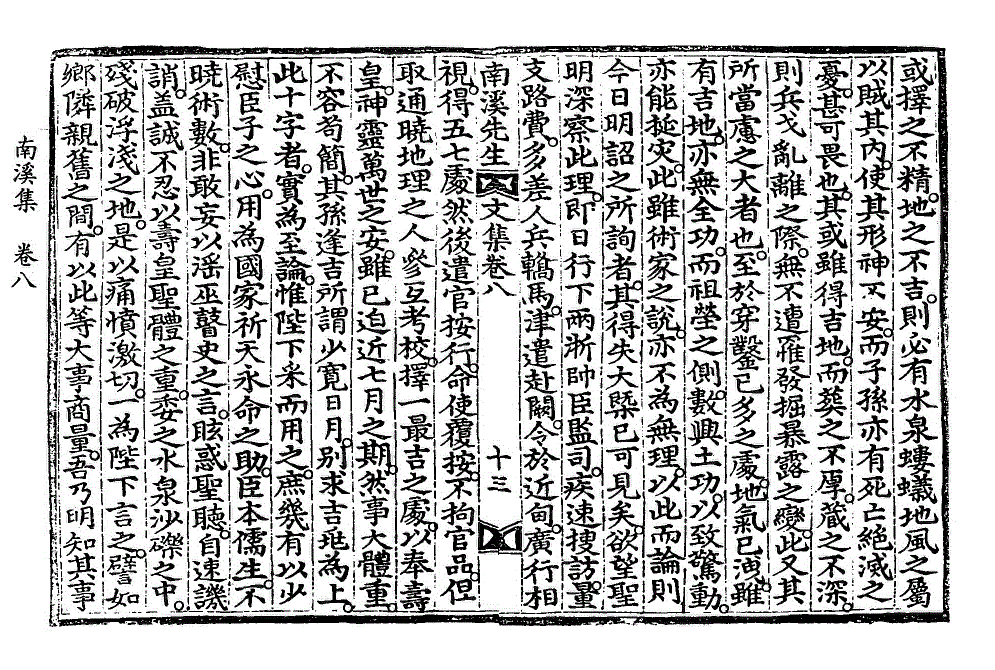 或擇之不精。地之不吉。則必有水泉螻蟻地風之屬
以賊其內。使其形神不安。而子孫亦有死亡絕滅之
憂。甚可畏也。其或雖得吉地。而葬之不厚。藏之不深。
則兵戈亂離之際。無不遭罹發掘暴露之變。此又其
所當慮之大者也。至於穿鑿已多之處。地氣已洩。雖
有吉地。亦無全功。而祖塋之側。數興土功。以致驚動。
亦能挻灾。此雖術家之說。亦不為無理。以此而論則
今日明詔之所詢者。其得失大槩已可見矣。欲望聖
明深察此理。即日行下兩浙帥臣監司。疾速搜訪。量
支路費。多差人兵轎馬。津遣赴闕。令於近甸。廣行相
南溪先生文集卷八 十三
視。得五七處然後遣官按行。命使覆按。不拘官品。但
取通曉地理之人。參互考校。擇一最吉之處。以奉壽
皇神靈萬世之安。雖已迫近七月之期。然事大體重。
不容苟簡。其孫逢吉所謂少寬日月。別求吉地為上
此十字者。實為至論。惟陛下采而用之。庶幾有以少
慰臣子之心。用為國家祈天永命之助。臣本儒生。不
曉術數。非敢妄以淫巫瞽史之言。眩惑聖聽。自速譏
誚。盖誠不忍以壽皇聖體之重。委之水泉沙礫之中。
殘破浮淺之地。是以痛憤激切。一為陛下言之。譬如
鄉隣親舊之間。有以此等大事商量。吾乃明知其事
南溪集 卷八